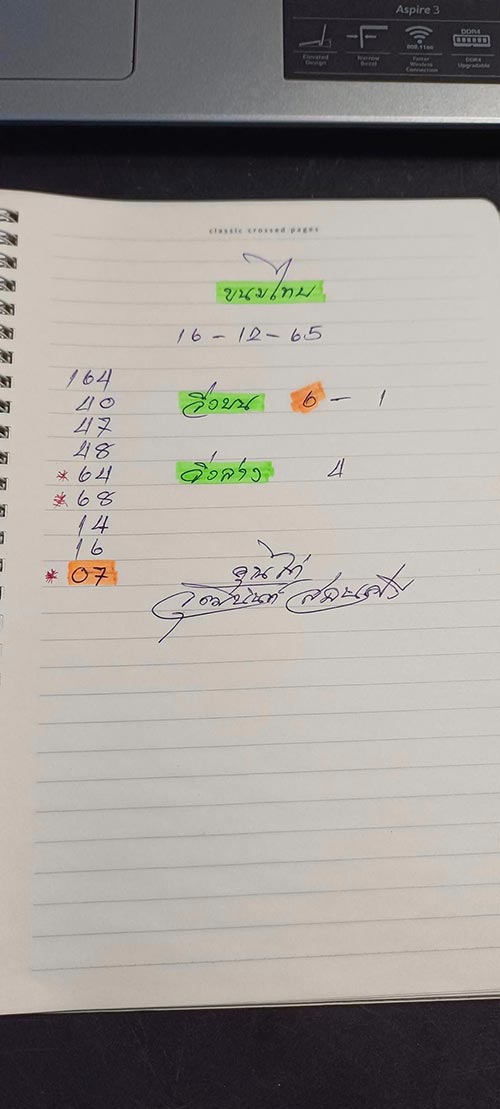 Aspire 3
Elevated Design
Narrow Bezel
802.11ac
Faster Wireless Connection
DDR4
DDR4 Upgradable
classic crossed pages
ขนมไทย
16 - 12 - 65
164
40 วิ่งบน 6 - 1
47
48
*64 วิ่งล่าง 4
*68
14
16
*07